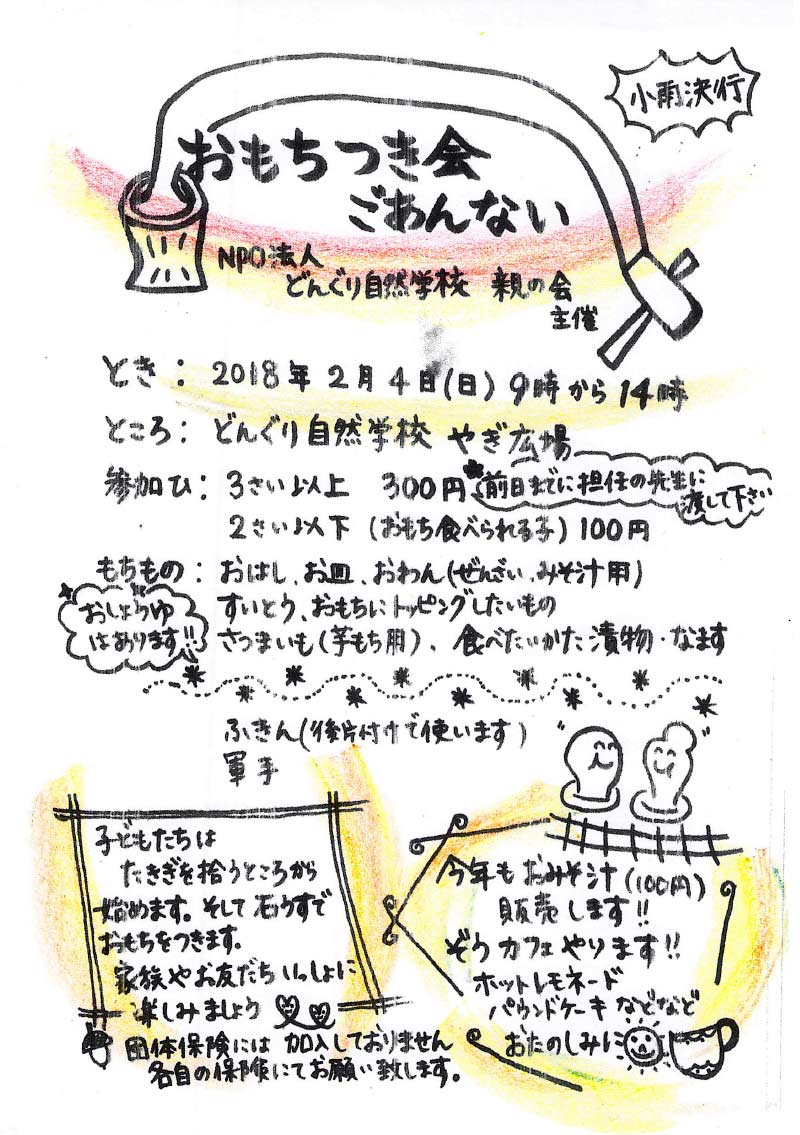 小雨決行
おもちつき会
ごあんない
NPO法人
どんぐり自然学校 親の会
主催
とき: 2018年2月4日(日) 9時から14時
ところ: どんぐり自然学校 やぎ広場
参加ひ: 3さい以上 300円
前日までに担任の先生に
渡して下さい
2さい以下 (おもち食べられる子) 100円
もちもの: おはし、お皿、おわん(ぜんざい、みそ汁用)
すいとう、おもちにトッピングしたいもの
さつまいも(芋もち用)、食べたいかた漬物・なます
おしょうゆ
はあります!!
ふきん(後片付けで使います)
軍手
子どもたちは
たきぎを拾うところから
始めます。そして石うすで
おもちをつきます。
家族やお友だちいっしょに
楽しみましょう
団体保険には加入しておりません
各自の保険にてお願い致します。
今年もおみそ汁(100円)
販売します!!
ぞうカフェやります!!
ホットレモネード
パウンドケーキなどなど
おたのしみに